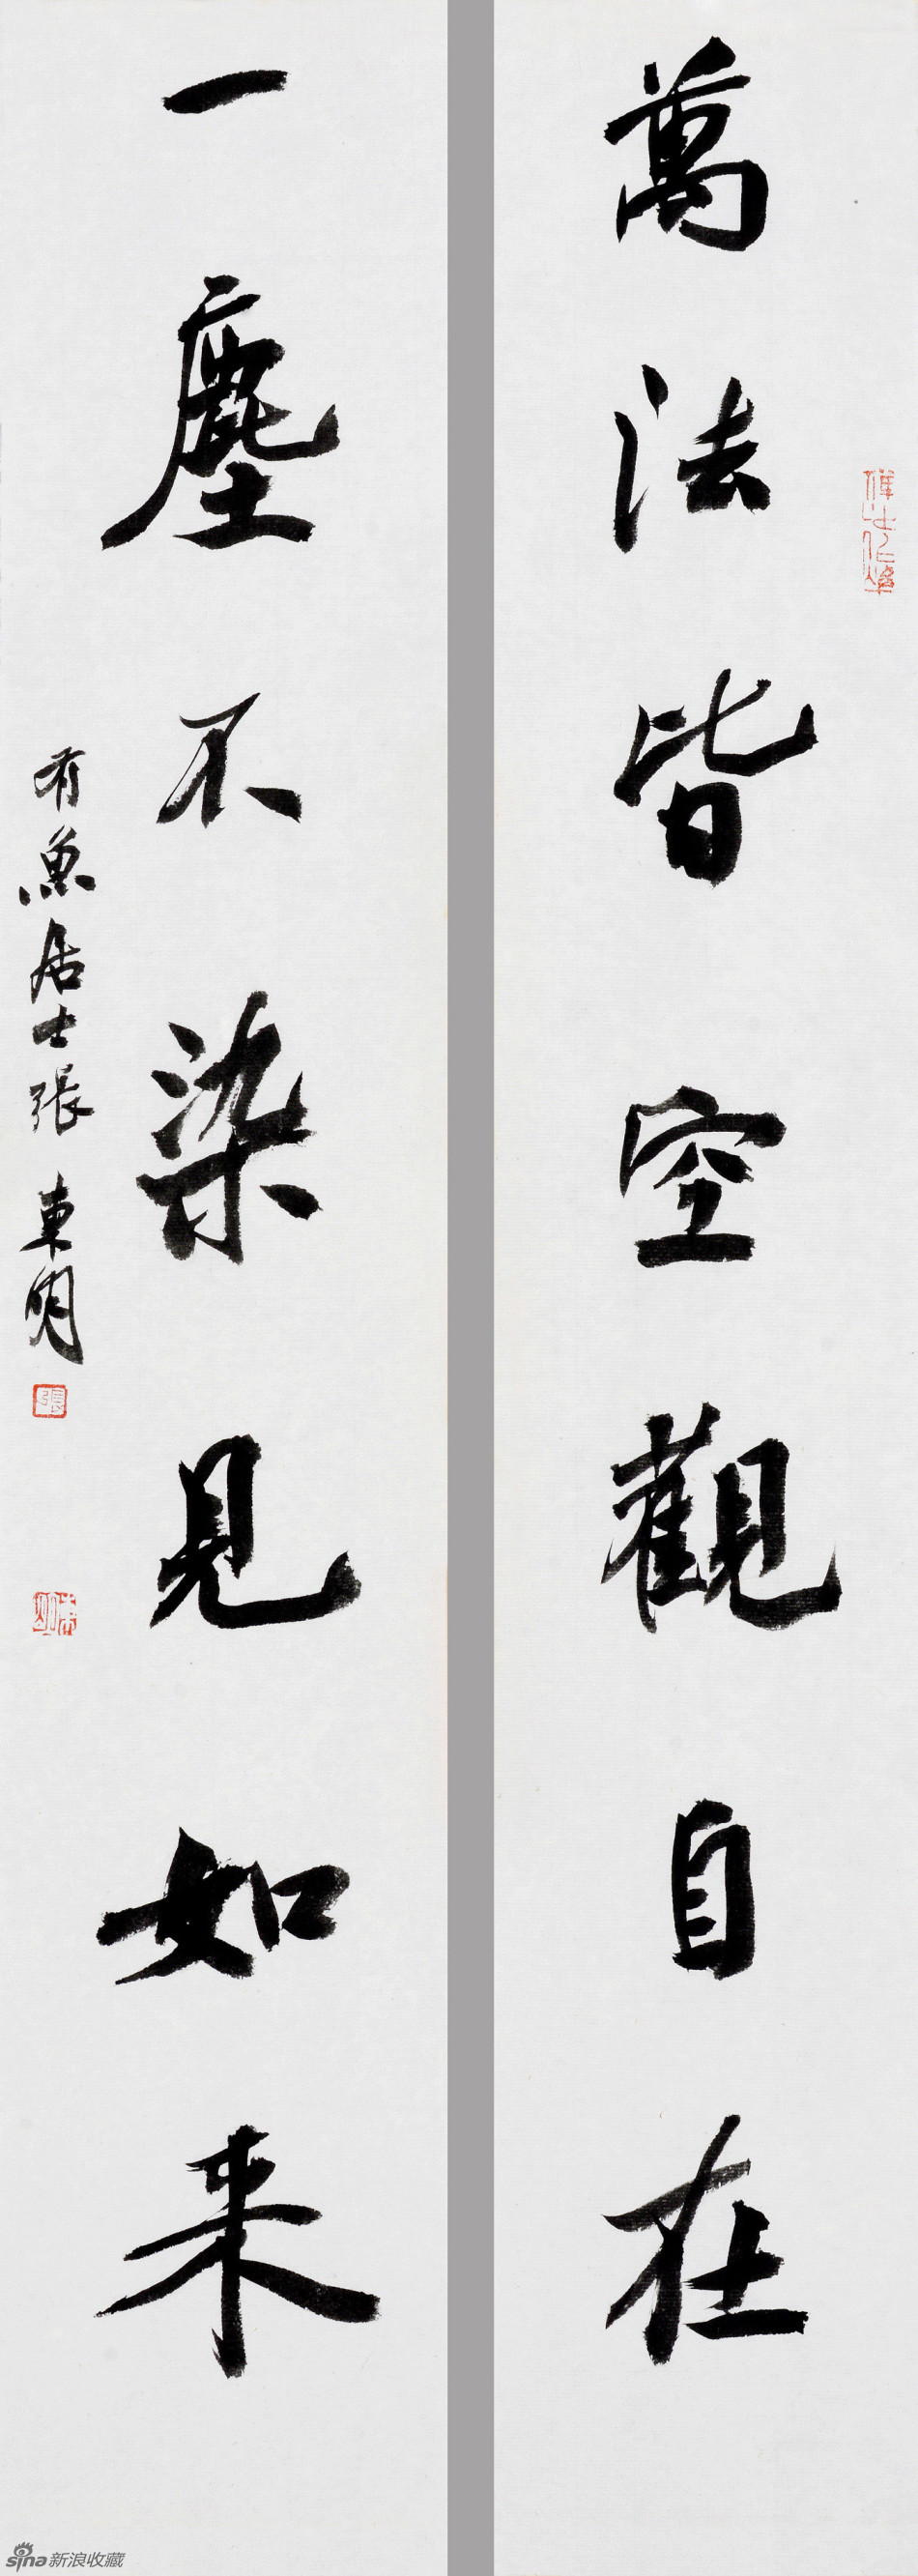 萬法皆空觀自在
一塵不染見如来
有魚居士張東明
張
sina新浪收藏